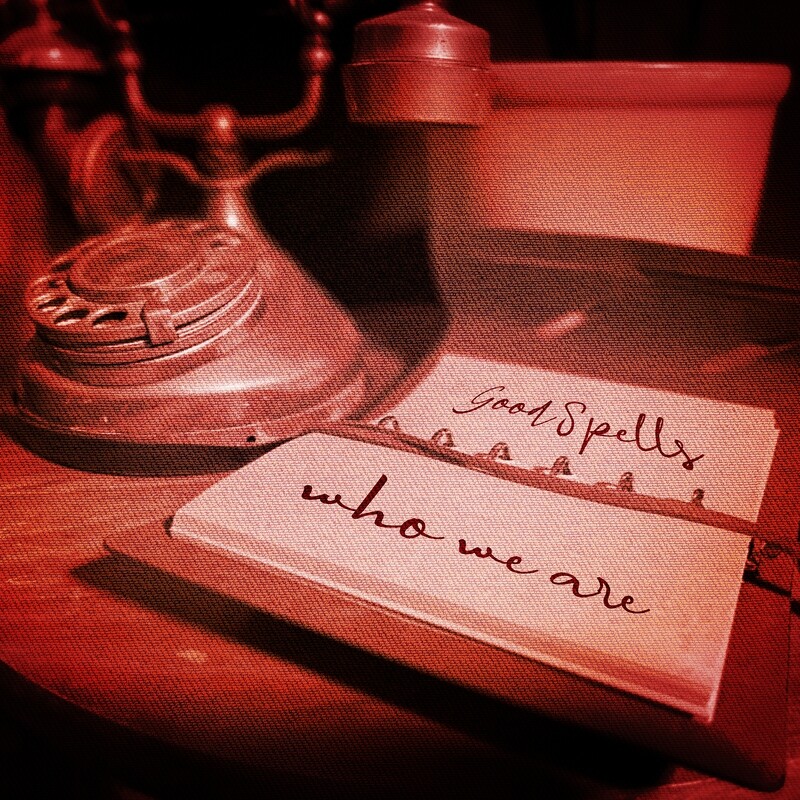 Good Spells
who we are